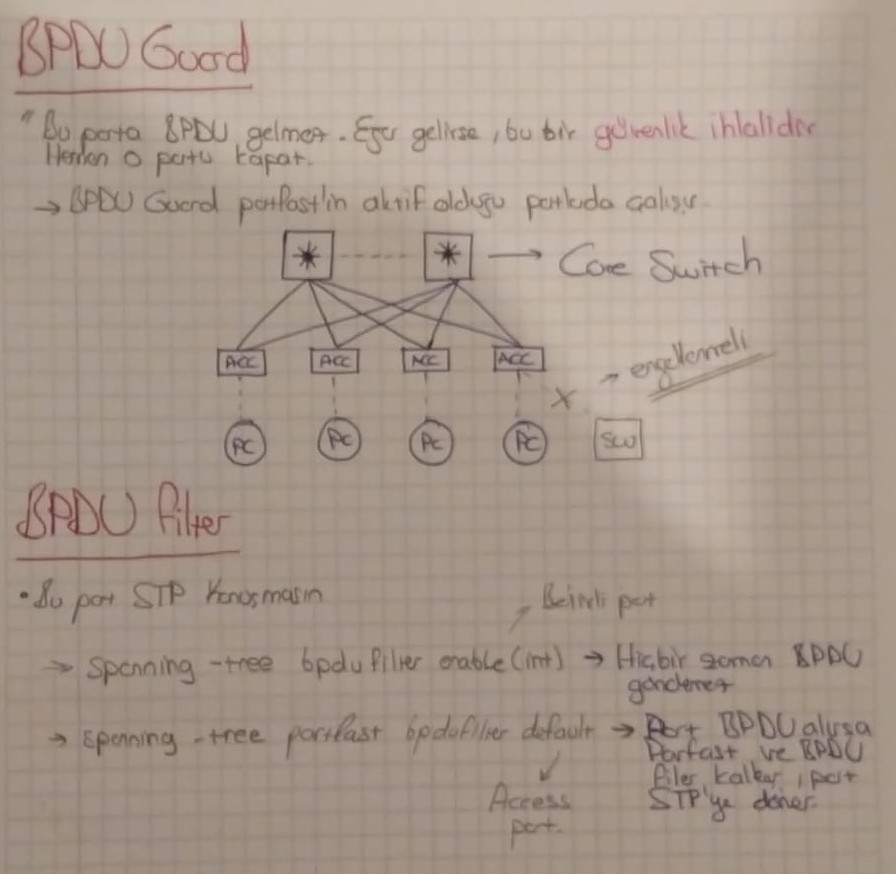 BPDU Guard
" Bu porta BPDU gelmez. Eğer gelirse, bu bir güvenlik ihlalidir
Hemen o portu kapat.
→ BPDU Guard portfast'in aktif olduğu portlarda çalışır.
* * → Core Switch
ACC ACC ACC ACC
X → engellenmeli
PC PC PC PC SW
BPDU filter
• Bu port STP Konuşmasın
Belirli port
→ Spanning-tree bpdufilter enable (int) → Hiçbir zaman BPDU
göndermez
→ Spanning-tree portfast bpdufilter default → Port BPDU alırsa
Porfast ve BPDU
filer kalkar, port
Access STP'ye döner.
port.